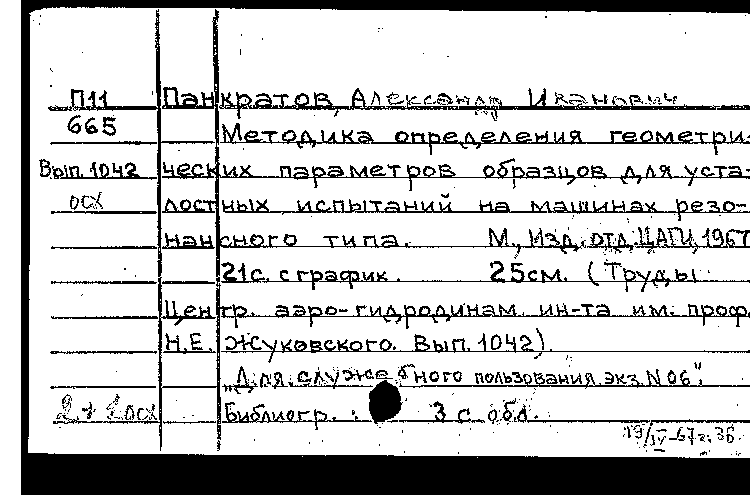 П11 Панкратов, Александр Иванович
665 Методика определения геометри-
Вып. 1042 ческих параметров образцов для уста-
осх лостных испытаний на машинах резо-
нансного типа. М., Изд. отд. ЦАГИ, 1967
21с. с график. 25см. (Труды
Центр. аэро-гидродинам. ин-та им. проф.
Н.Е. Жуковского. Вып. 1042).
„Для служебного пользования экз. N 06".
2 + 1 осх Библиогр.: 3 с. обл.
19/IV-67г.